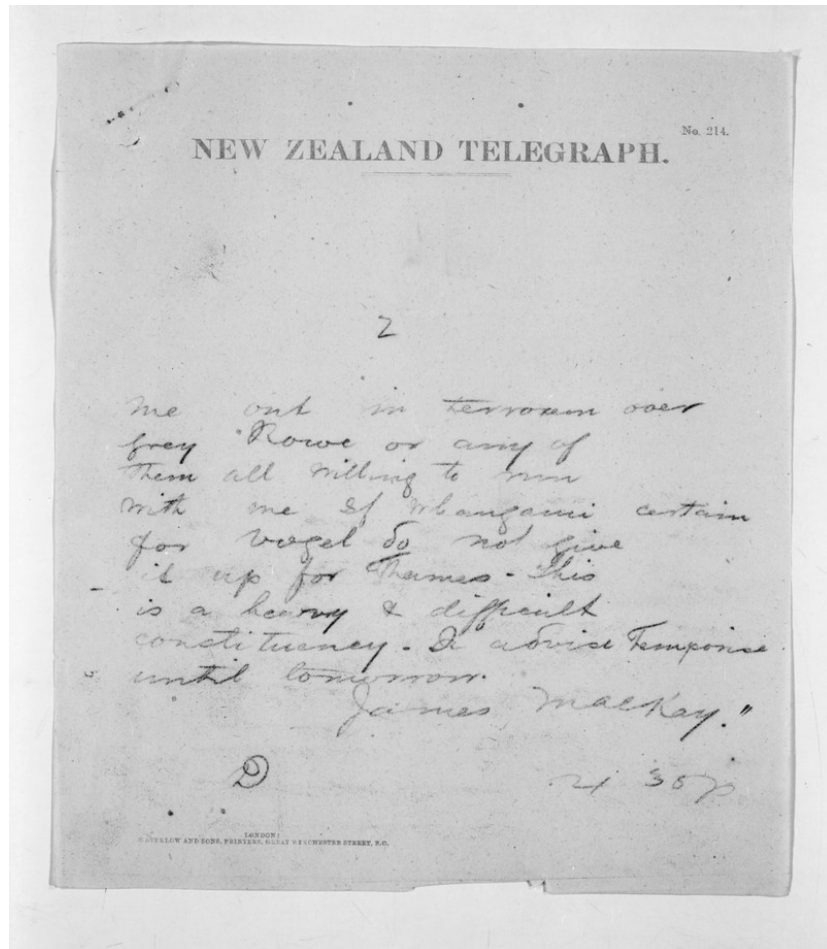 No. 214.
NEW ZEALAND TELEGRAPH.
2
me out in terrorem over
Grey Rowe or any of
them all willing to run
with me If Whanganui certain
for Vogel do not give
it up for Thames - This
is a heavy & difficult
constituency. I advise Temporise
until tomorrow.
James Mackay."
D
LONDON:
WATERLOW AND SONS, PRINTERS, GREAT WINCHESTER STREET, E.C.